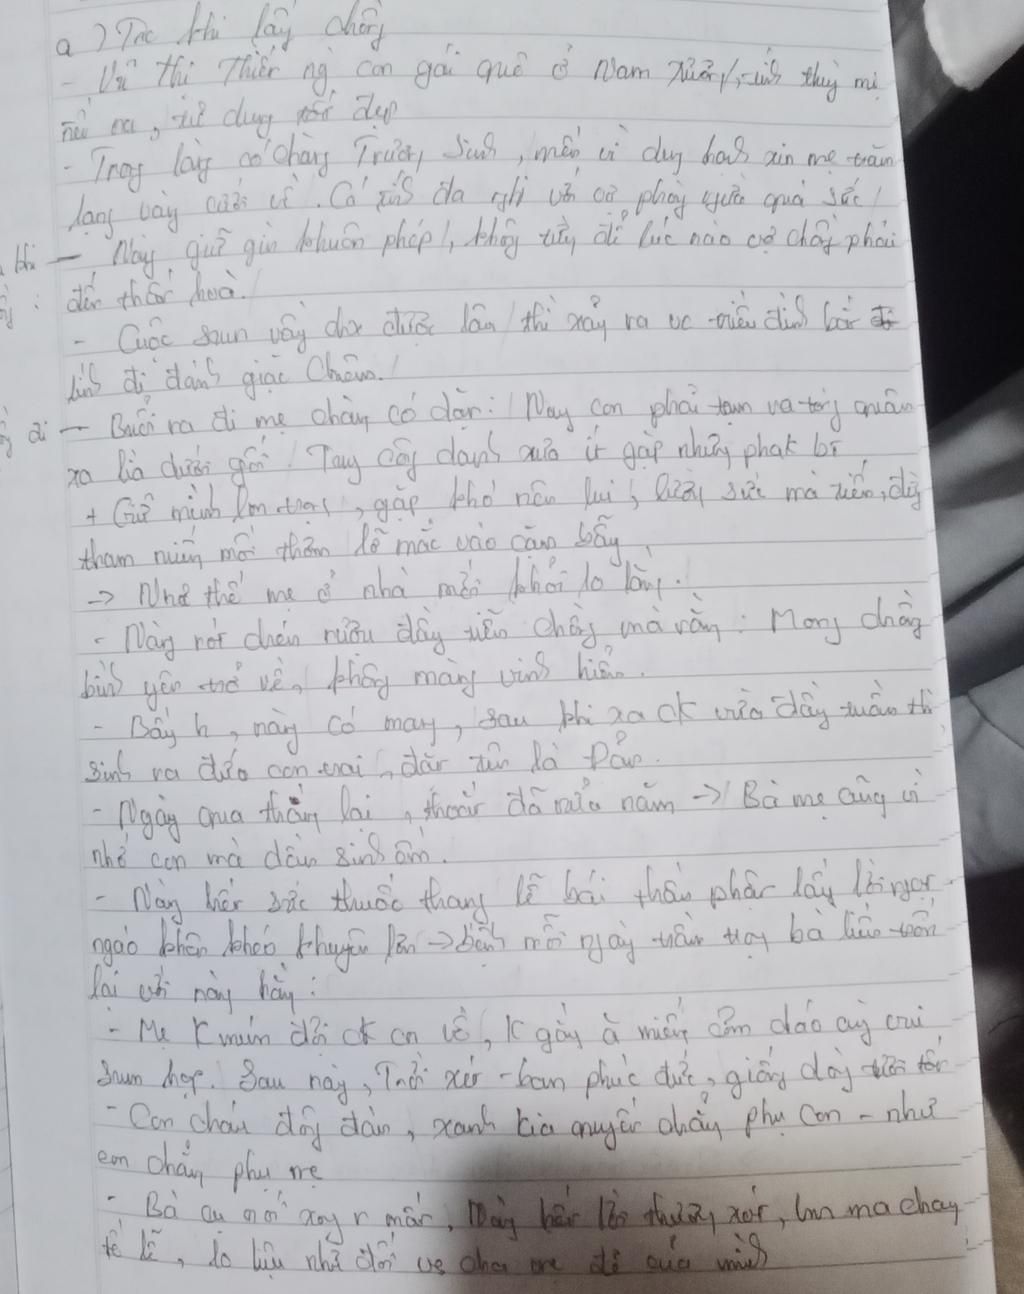 a) Trc khi lấy chồng
- Vũ Thị Thiết ng con gái quê ở Nam Xương, tính thuỳ mị
nết na, tư dung tốt đẹp
- Trong làng có chàng Trương Sinh, mến vì dung hạnh xin mẹ trăm
lạng vàng cưới về. Có tính đa nghi với vợ phòng ngừa quá sức
khi — Nàng giữ gìn khuôn phép, không từng để lúc nào vợ chồng phải
đến thất hoà.
- Cuộc sum vầy chx được lâu thì xảy ra vc triều đình bắt
lính đi đánh giặc Chiêm.
đi — Buổi ra đi mẹ chàng có dặn: Nay con phải tạm và tòng quân
xa lìa dưới gối. Tuy công danh xưa ít gặp nhưng phải
+ Giữ mình làm trọng, gặp khó nên lui, lường sức mà tiến, đừng
tham miếng mồi thơm để mắc vào cạm bẫy
-> Như thế mẹ ở nhà mới khỏi lo lắng.
- Nàng rót chén rượu đầy tiễn chồng mà rằng: Mong chồng
bình yên trở về, không màng vinh hiển.
- Bấy h, nàng có mang, sau khi xa ck vừa đầy tuần thì
sinh ra đứa con trai, đặt tên là Đản.
- Ngày qua tháng lại, thoắt đã nửa năm -> Bà mẹ cũng vì
nhớ con mà dần sinh ốm.
- Nàng hết sức thuốc thang lễ bái thần phật lấy lời ngọt
ngào khôn khéo khuyên lơn -> bệnh mỗi ngày trầm trọng bà liền trối
lại với nàng rằng:
- Mẹ K muốn đợi ck cn về, K gắng à miếng cơm cháo cùng vui
sum họp. Sau này, Trời xét ban phúc đức, giống dòng tươi tốt
- Con cháu đông đàn, xanh kia quyết chẳng phụ con - như
con chẳng phụ mẹ
- Bà cụ nói xong r mất, Nàng hết lời thương xót, lm ma chay
tế lễ, lo liệu như đối vs cha mẹ đẻ của mình